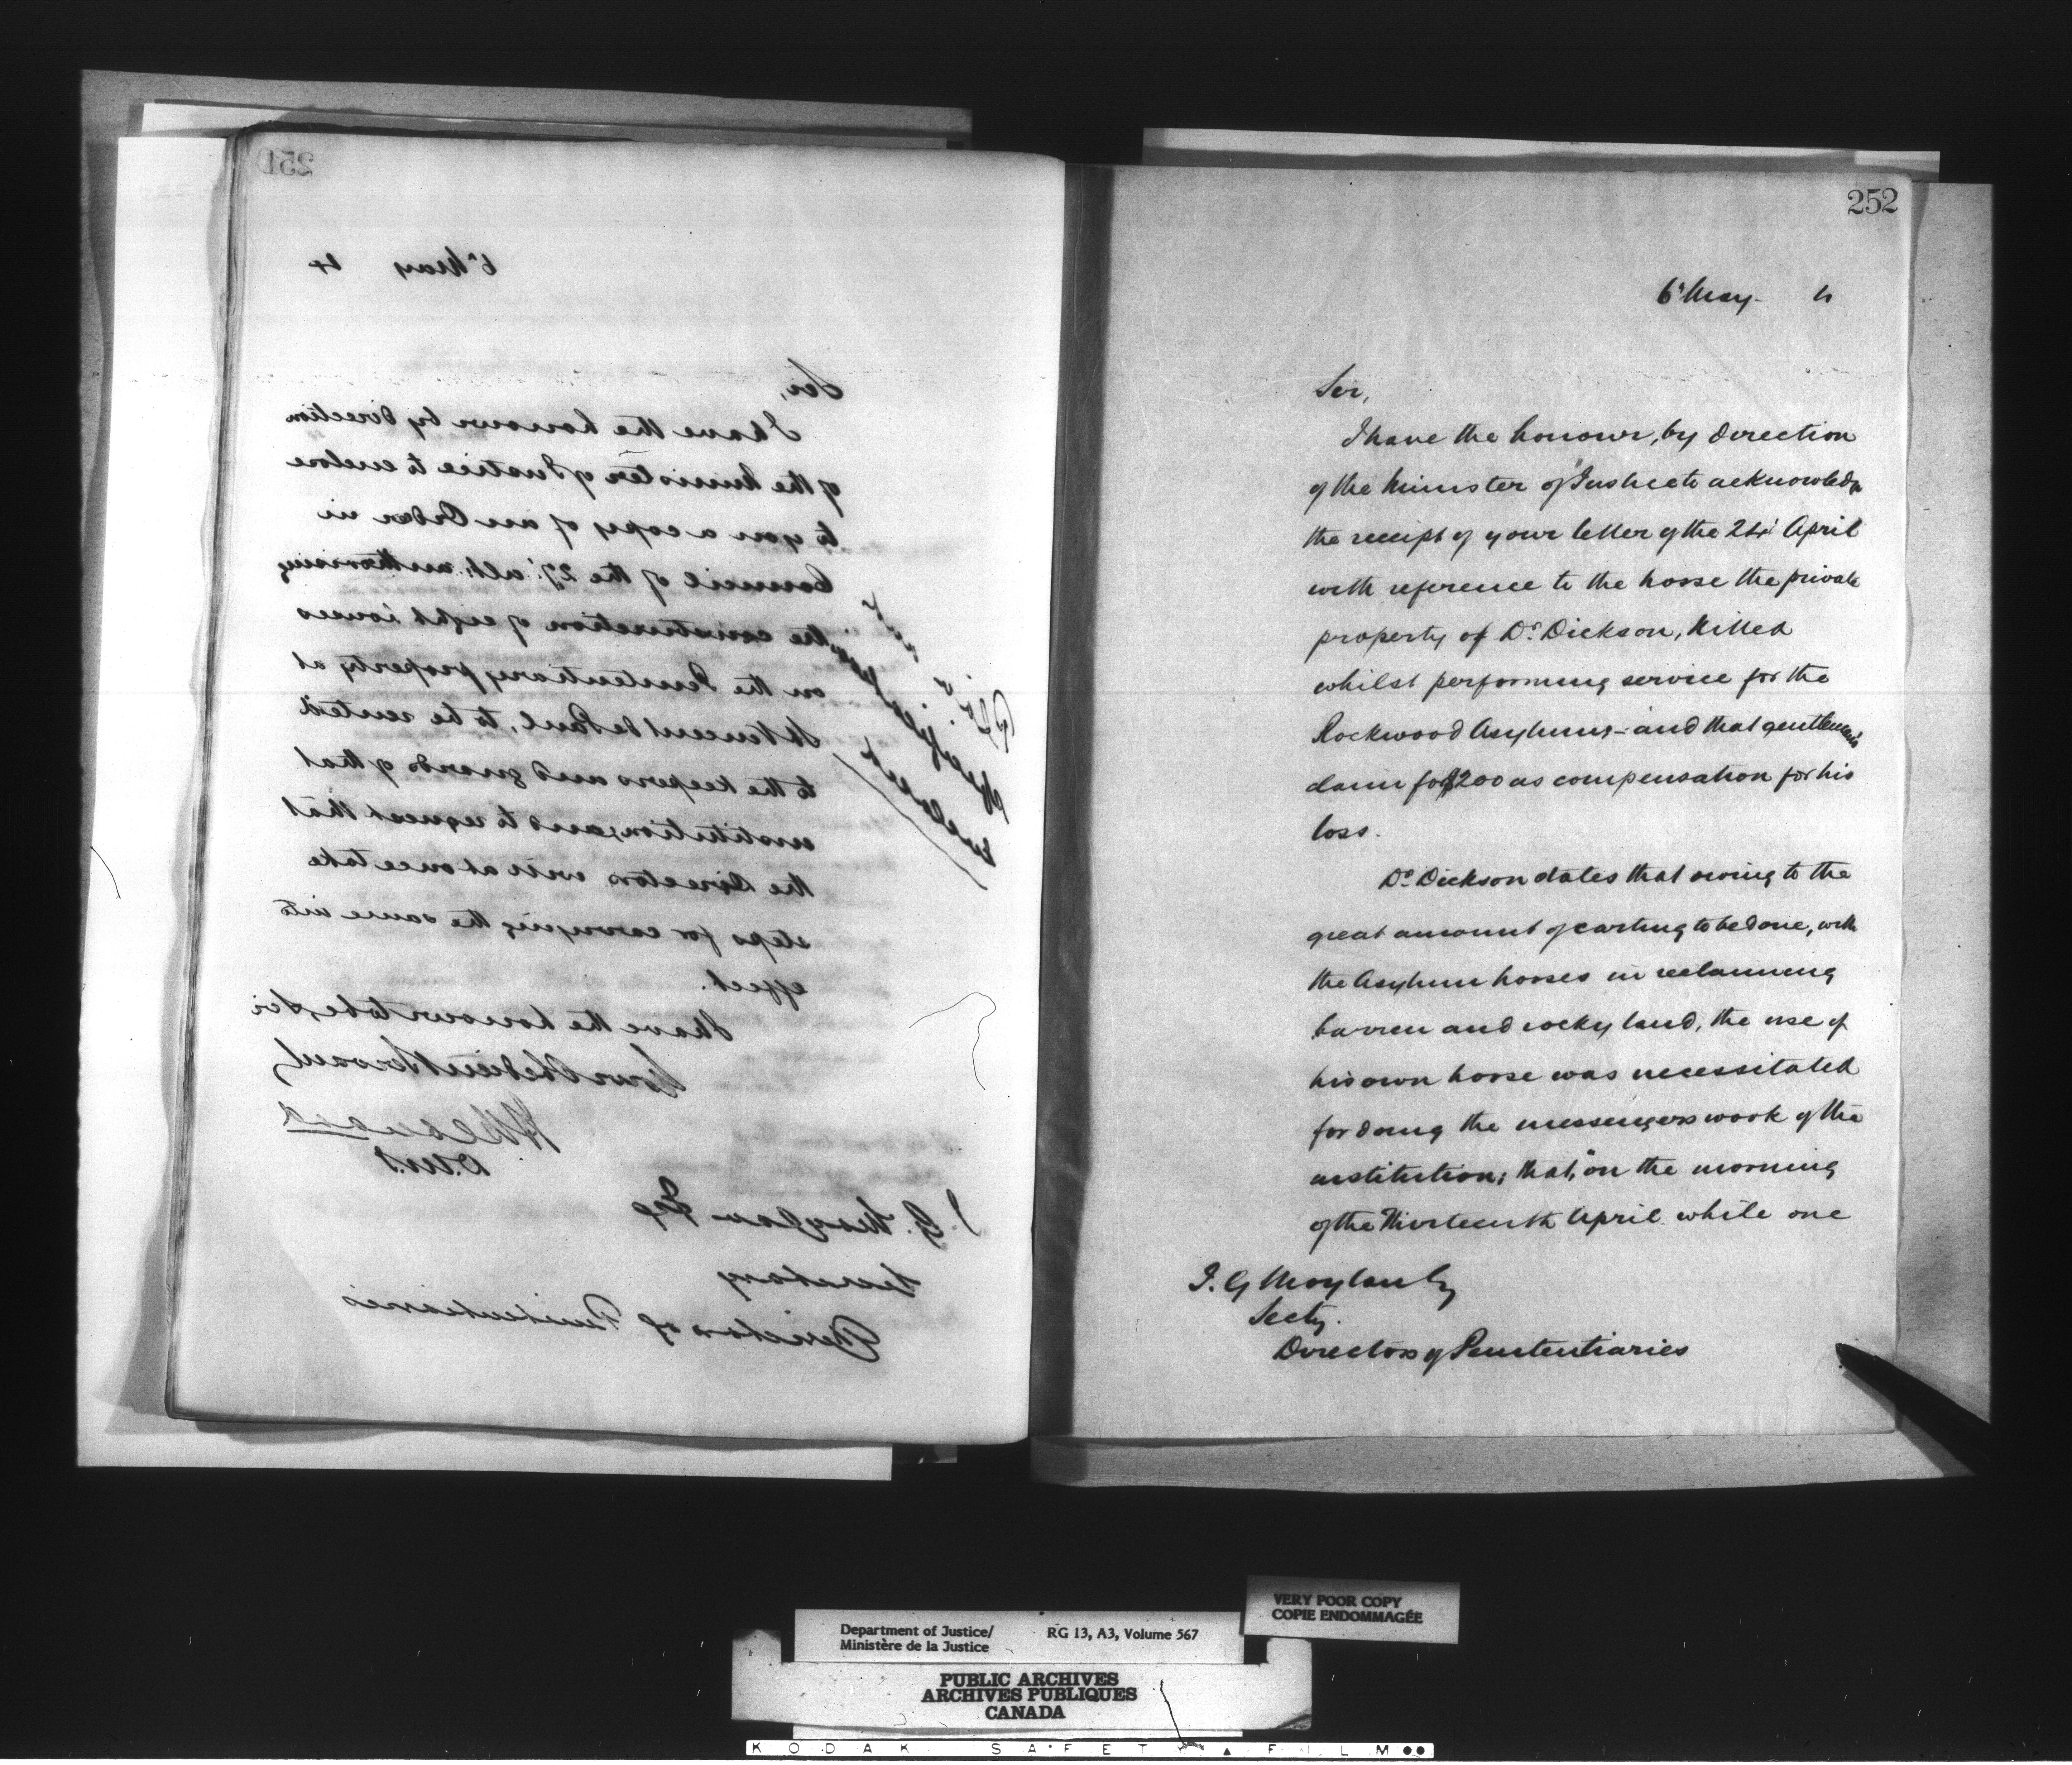 251
6th May 4
Sir,
I have the honour by direction
of the Minister of Justice to enclose
to you a copy of an Order in
Council of the 27th ult. authorising
the construction of eight houses
on the Penitentiary property at
St Vincent de Paul, to be rented
to the keepers and guards of that
institution, and to request that
the Directors will at once take
steps for carrying the same into
effect.
I have the honour to be, Sir
Your Obedient Servant
H Bernard
D.M.J.
J. G. Moylan Esq
Secretary
Directors of Penitentiaries
252
6th May - 4
Sir,
I have the honour, by direction
of the Minister of Justice to acknowledge
the receipt of your letter of the 24th April
with reference to the horse the private
property of Dr. Dickson, killed
whilst performing service for the
Rockwood Asylum - and that gentleman's
claim for $200 as compensation for his
loss.
Dr. Dickson states that owing to the
great amount of carting to be done, with
the Asylum horses in reclaiming
barren and rocky land, the use of
his own horse was necessitated
for doing the messengers work of the
institution; that, "on the morning
of the Thirteenth April while one
J. G Moylan Esq
Secty.
Directors of Penitentiaries
VERY POOR COPY
COPIE ENDOMMAGÉE
Department of Justice/ RG 13, A3, Volume 567
Ministère de la Justice
PUBLIC ARCHIVES
ARCHIVES PUBLIQUES
CANADA
KODAK SAFETY ▲ FILM